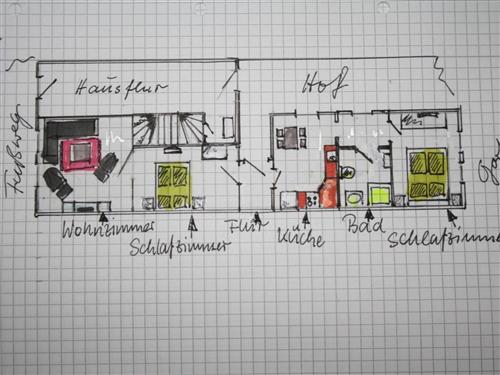 Hausflur
Hof
Fußweg
Wohnzimmer
Schlafzimmer
Flur
Küche
Bad
Schlafzimme